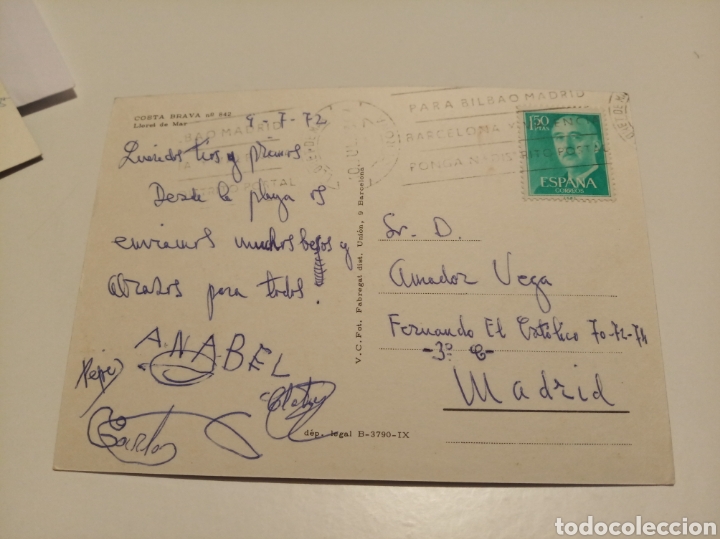 COSTA BRAVA nº 842
Lloret de Mar
9-7-72
Queridos tios y primos
Desde la playa os
enviamos muchos besos y
abrazos para todos.
ANABEL
Pepi
Carlos
dép. legal B-3790-IX
V. C. Fot. Fabregat dist. Unión, 9 Barcelona
PARA BILBAO MADRID
BARCELONA Y
PONGA N DISTRITO POSTAL
BAO MADRID
POSTAL
1,50
PTAS
ESPAÑA
CORREOS
Sr. D.
Amador Vega
Fernando El Católico 70-72-74
-3º C-
Madrid
todocoleccion